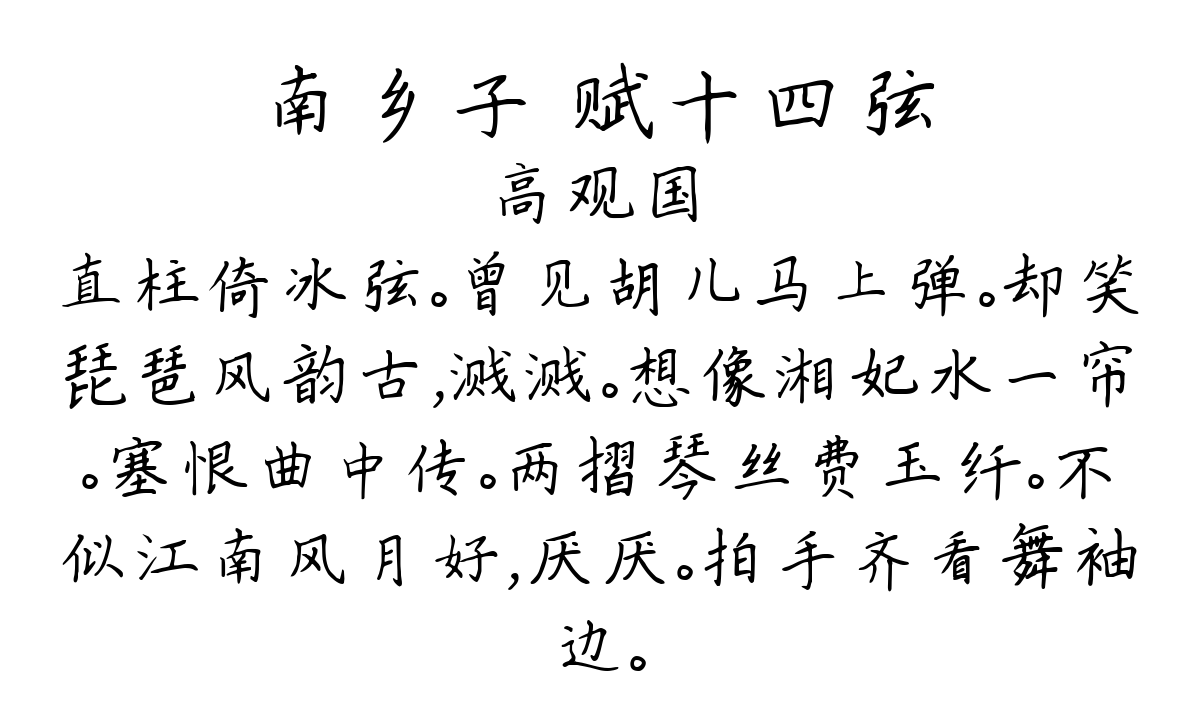 南乡子 赋十四弦
高观国
直柱倚冰弦。曾见胡儿马上弹。却笑
琵琶风韵古,溅溅。想像湘妃水一帘
。塞恨曲中传。两摺琴丝费玉纤。不
似江南风月好,厌厌。拍手齐看舞袖
边。